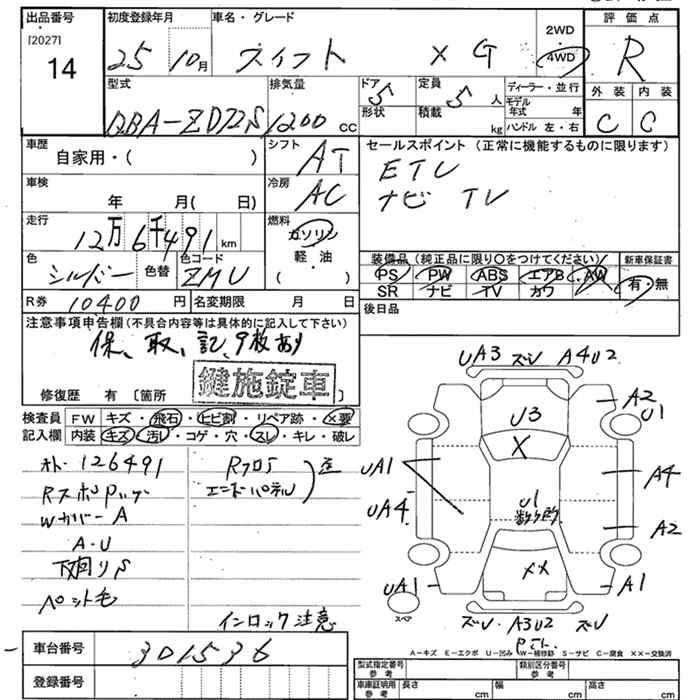 出品番号 初度登録年月 車名・グレード 2WD 評価点
[2027] 14 25 10月 スイフト XG 4WD R
型式 排気量 ドア 5 定員 5人 ディーラー・並行 外装 内装
DBA-ZD72S 1200cc 形状 積載 kg モデル年式 年 C C
ハンドル 左・右
車歴 シフト AT セールスポイント (正常に機能するものに限ります)
自家用・( ) ETC
車検 冷房 AC ナビ TV
年 月( 日)
走行 燃料
12万6千491km ガソリン
軽・油
( )
色 色替 色コード 装備品 (純正品に限り○をつけてください) 新車保証書
シルバー ZMU PS PW ABS エアB AW 有・無
SR ナビ TV カワ
R券 10400円 名変期限 月 日 後日品
注意事項申告欄 (不具合内容等は具体的に記入して下さい)
保、取、記、9枚あり
鍵施錠車
修復歴 有 〔箇所
検査員 FW キズ・飛石・ヒビ割・リペア跡・×要
記入欄 内装 キズ・汚レ・コゲ・穴・スレ・キレ・破レ
オト. 126491 Rフロア
エンドパネル
WカバーA
A・U
下回りS
ペット毛
インロック注意
UA3 ズU A4U2
A2
U3 U1
X
UA1 A4
UA4 U1 A2
××
UA1 A1
スペア
ズU・A3U2 ズU
A-キズ E-エクボ U-凹み W-補修跡 S-サビ C-腐食 ××-交換済
車台番号 301536
型式指定番号 参考 類別区分番号 参考
登録番号
車庫証明用 参考 長さ cm 幅 cm 高さ cm